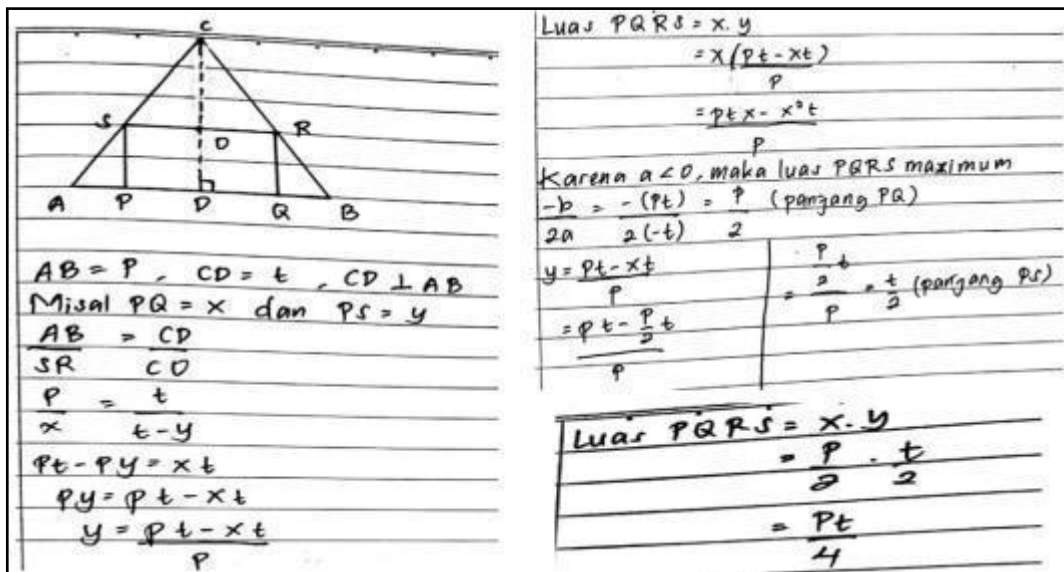 C
S O R
A P D Q B
AB = P , CD = t , CD ⊥ AB
Misal PQ = x dan PS = y
AB/SR = CD/CO
P/x = t/(t-y)
Pt - Py = xt
Py = pt - xt
y = (pt - xt)/P
Luas PQRS = x.y
= x(pt - xt)/P
= (ptx - x²t)/P
Karena a < 0, maka luas PQRS maximum
-b/2a = -(Pt)/2(-t) = P/2 (panjang PQ)
y = (Pt - xt)/P
= (pt - P/2 t)/P
= (P/2 t)/P = t/2 (panjang PS)
Luas PQRS = x.y
= P/2 . t/2
= Pt/4